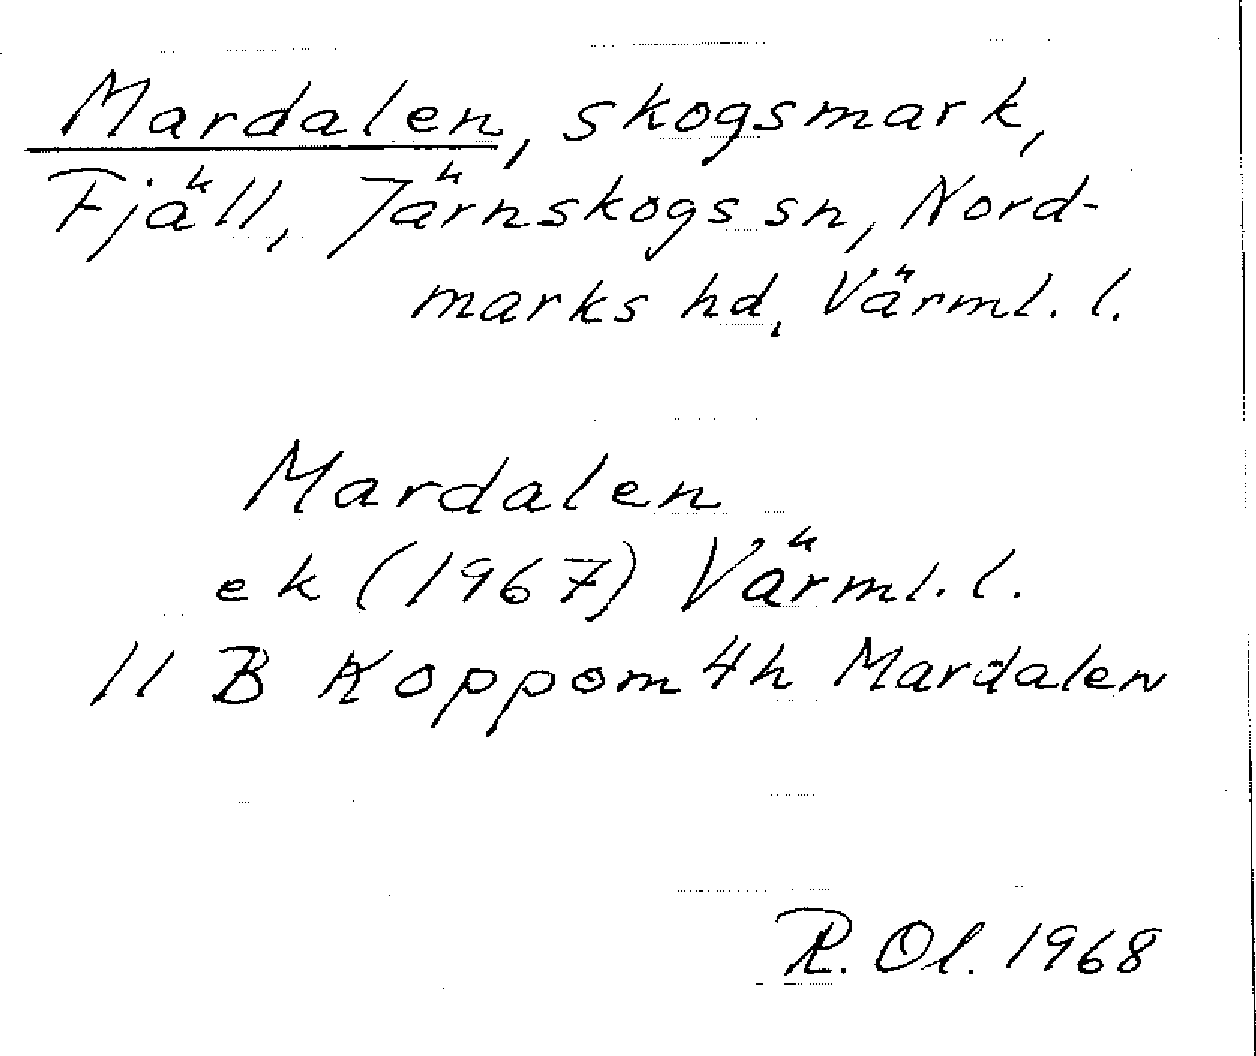 Mardalen, skogsmark,
Fjäll, Järnskogs sn, Nord-
marks hd, Värml. l.
Mardalen
ek (1967) Värml. l.
11 B Koppom 4h Mardalen
R. Ol. 1968